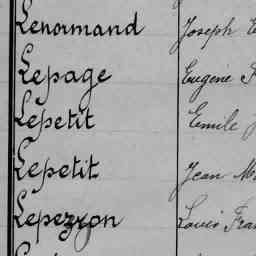 Lenormand Joseph
Lepage Eugène
Lepetit Emile
Lepetit Jean
Lepezron Louis